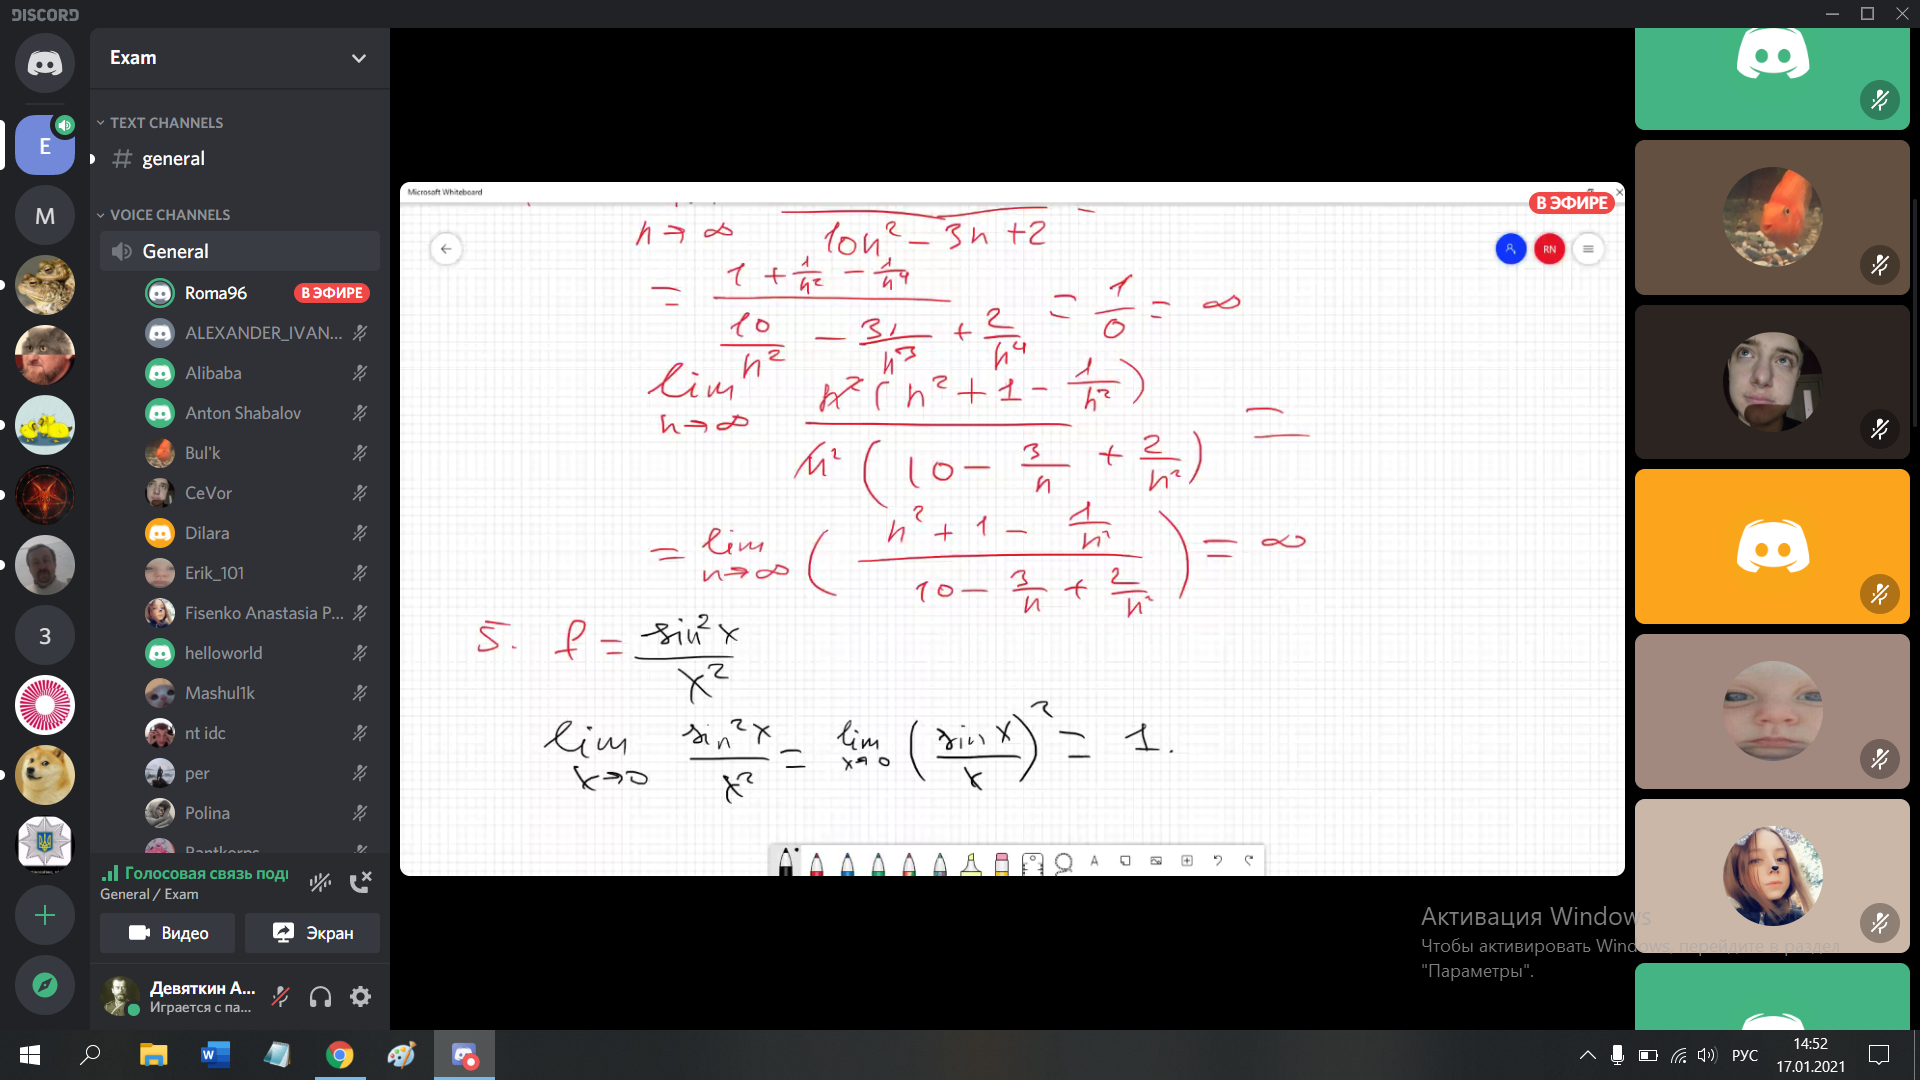 DISCORD
Exam
TEXT CHANNELS
# general
VOICE CHANNELS
General
Roma96 В ЭФИРЕ
ALEXANDER_IVAN...
Alibaba
Anton Shabalov
Bul'k
CeVor
Dilara
Erik_101
Fisenko Anastasia P...
helloworld
Mashul1k
nt idc
per
Polina
E
M
3
Голосовая связь подк
General / Exam
Видео
Экран
Девяткин А...
Играется с па...
Microsoft Whiteboard
В ЭФИРЕ
RN
n→∞ 10n² − 3n + 2 =
= (1 + 1/n² − 1/n⁴) / (10/n² − 3/n³ + 2/n⁴) = 1/0 = ∞
lim n→∞ n²(n² + 1 − 1/n²) / n²(10 − 3/n + 2/n²) =
= lim n→∞ ((n² + 1 − 1/n²) / (10 − 3/n + 2/n²)) = ∞
5. f = sin²x / x²
lim x→0 sin²x / x² = lim x→0 (sin x / x)² = 1.
Активация Windows
Чтобы активировать Windows, перейдите в раздел
"Параметры".
РУС
14:52
17.01.2021